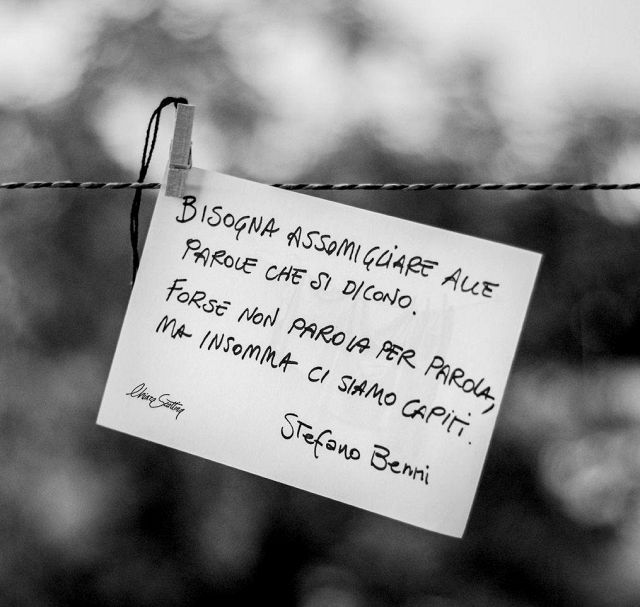 BISOGNA ASSOMIGLIARE ALLE
PAROLE CHE SI DICONO.
FORSE NON PAROLA PER PAROLA,
MA INSOMMA CI SIAMO CAPITI.
Stefano Benni